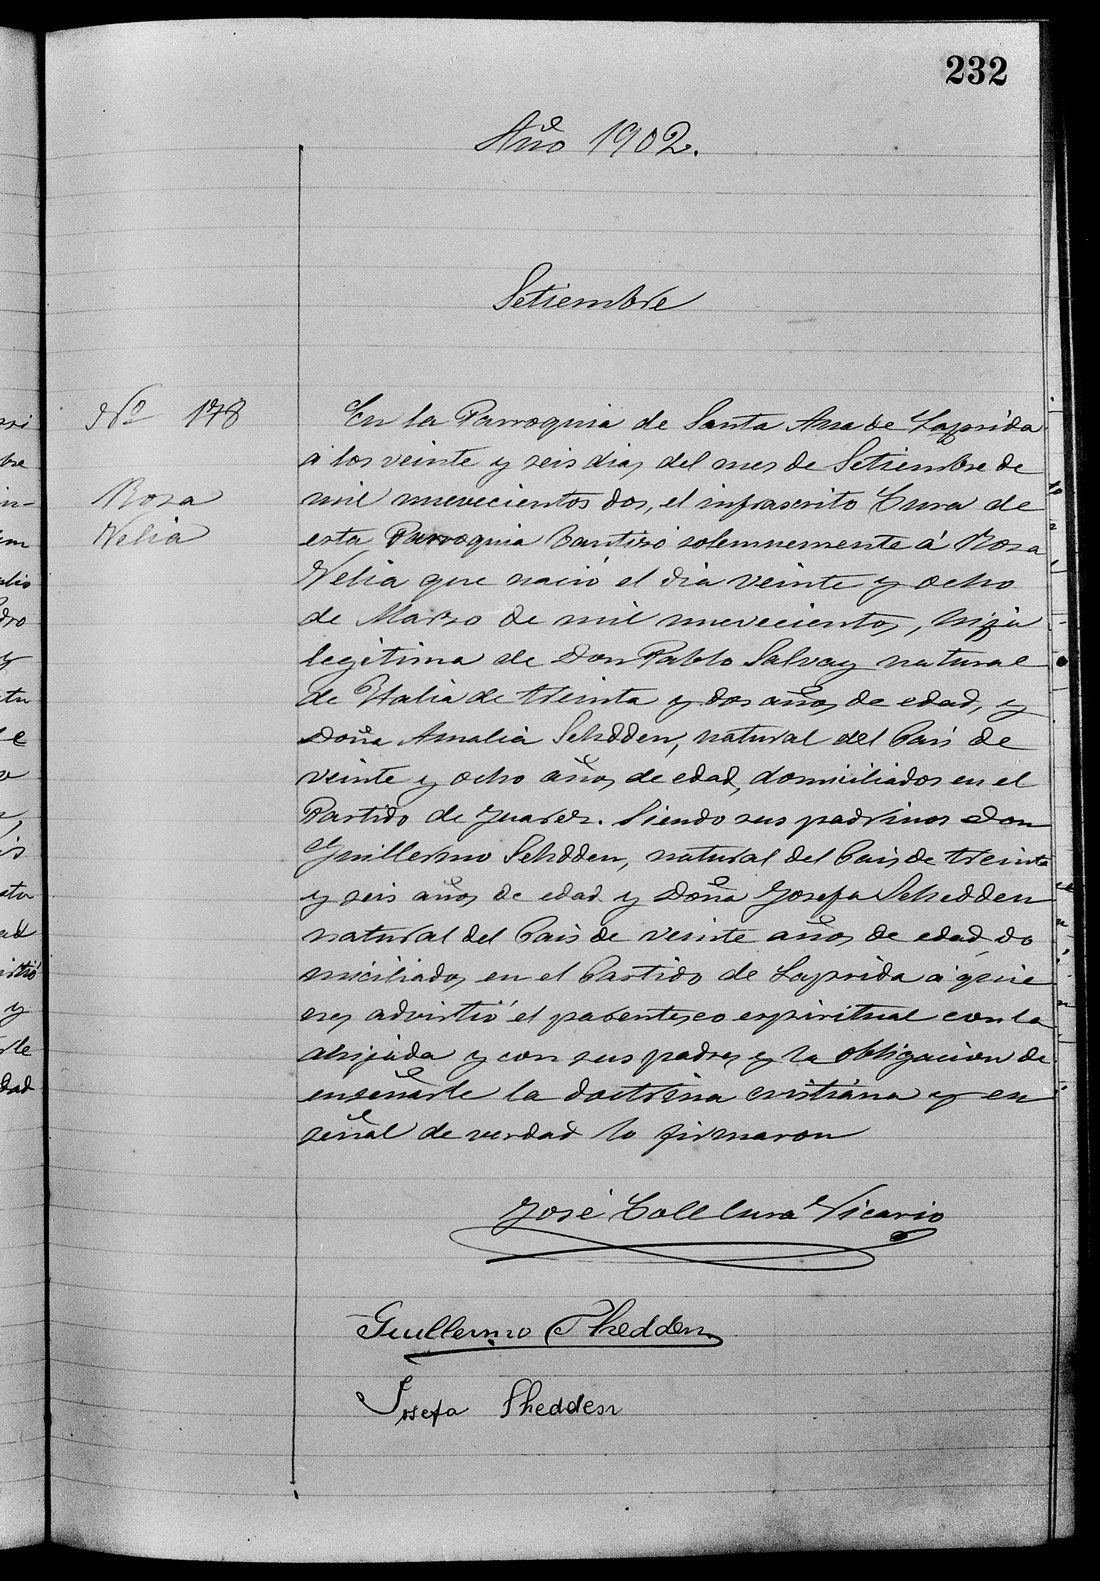 232
Año 1902.
Setiembre
Nº 178
Rosa
Nelia
En la Parroquia de Santa Ana de Laprida
á los veinte y seis dias, del mes de Setiembre de
mil nuevecientos dos, el infrascrito Cura de
esta Parroquia bautizó solemnemente á Rosa
Nelia que nació el dia veinte y ocho
de Marzo de mil nuevecientos, hija
legitima de Don Pablo Salvay natural
de Italia de treinta y dos años, de edad, y
Doña Amalia Schdden, natural del Pais de
veinte y ocho años, de edad, domiciliados en el
Partido de Juarez. Siendo sus padrinos Don
Guillermo Schdden, natural del Pais de treinta
y seis años de edad y Doña Josefa Schedden
natural del Pais de veinte años, de edad, do
miciliados, en el Partido de Laprida á quie
nes, advirtió el parentesco espiritual con la
ahijada y con sus padres, y la obligacion de
enseñarle la doctrina cristiana y en
señal de verdad lo firmaron
José Coll Cura Vicario
Guillermo Shedden
Josefa Shedden